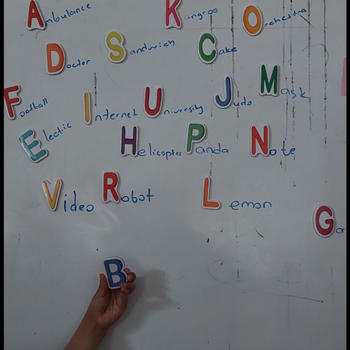 Ambulance Kangroo Orchestra
Doctor Sandwich Cake
Football Internet University Judo Mask
Electic Helicopter Panda Note
Video Robot Lemon
B